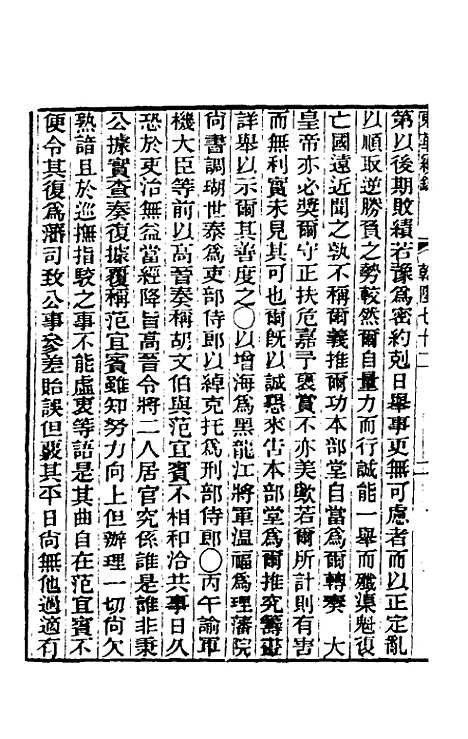 東華續錄 乾隆七十二 二
第以後期敗績若豫爲密約剋日舉事更無可慮者而以正定亂
以順取逆勝負之勢較然爾自量力而行誠能一舉而殲渠魁復
亡國遠近聞之孰不稱爾義推爾功本部堂自當爲爾轉奏 大
皇帝亦必獎爾守正扶危嘉予褒賞不亦美歟若爾所計則有害
而無利實未見其可也爾旣以誠懇來告本部堂爲爾推究籌畫
詳舉以示爾其善度之○以增海爲黑龍江將軍溫福爲理藩院
尙書調瑚世泰爲吏部侍郎以綽克托爲刑部侍郎○丙午諭軍
機大臣等前以高晉奏稱胡文伯與范宜賓不相和洽共事日久
恐於吏治無益當經降旨高晉令將二人居官究係誰是誰非秉
公據實查奏復據覆稱范宜賓雖知努力向上但辦理一切尙欠
熟諳且於巡撫指駁之事不能虛衷等語是其曲自在范宜賓不
便令其復爲藩司致公事參差貽誤但覈其平日尙無他過適有